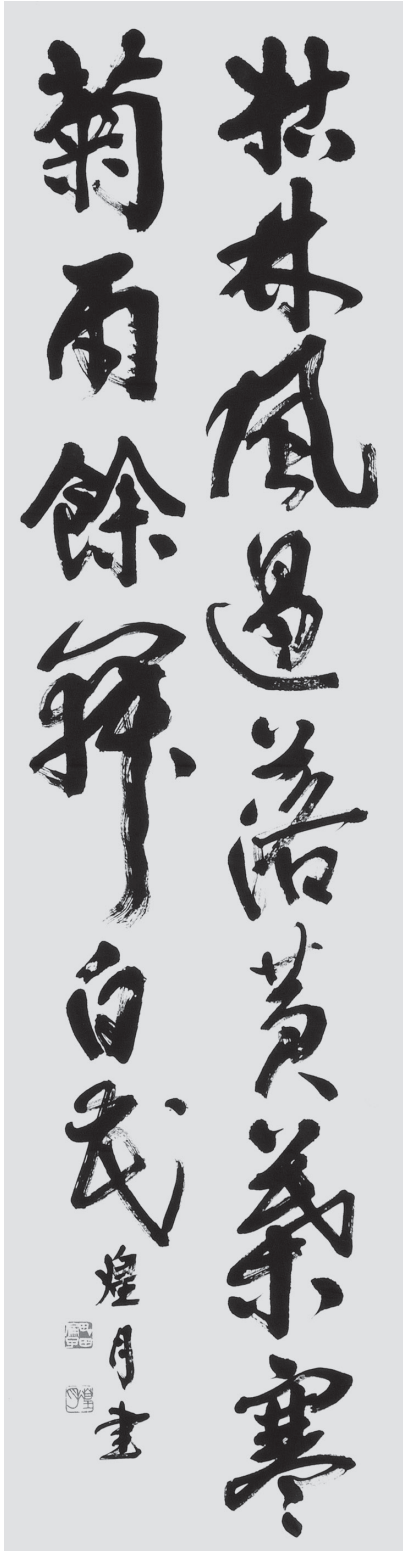 枯林風過落黄葉寒
菊雨餘白花
煌月書